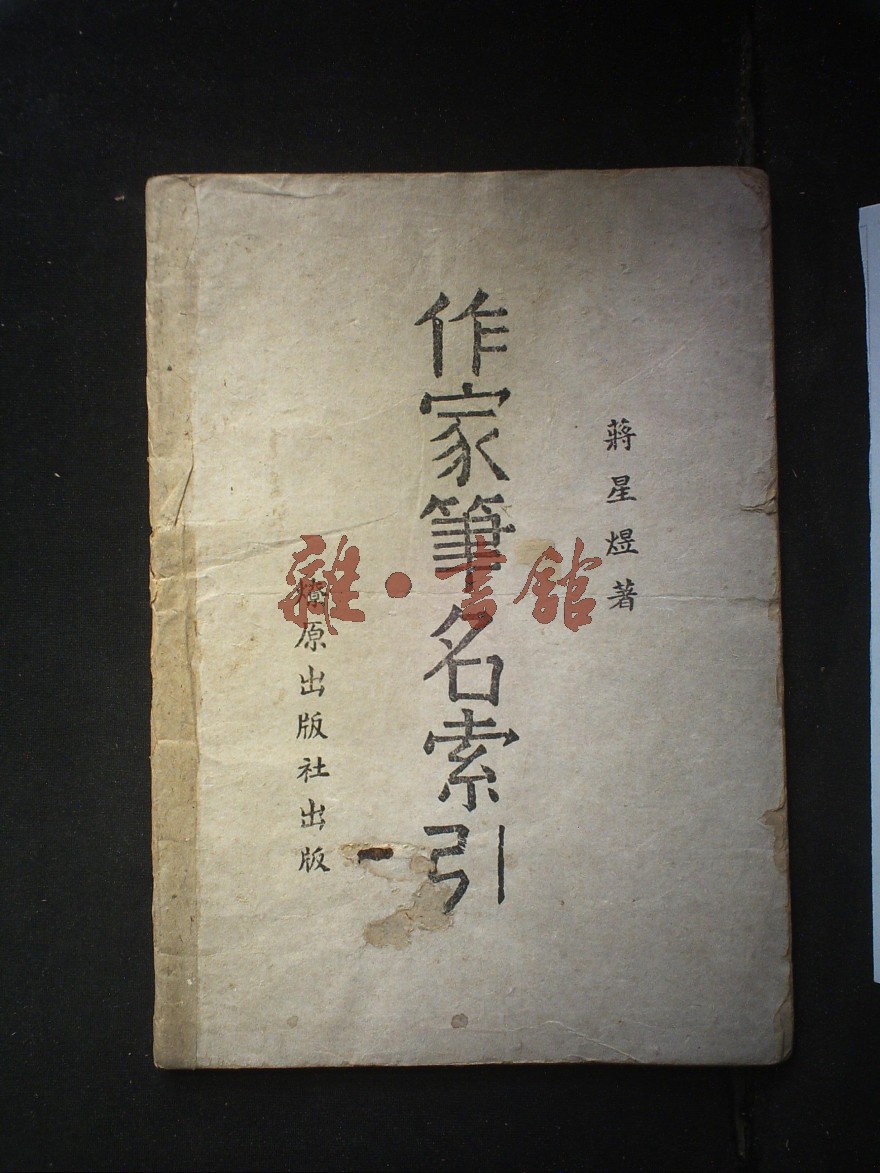 蔣星煜著
作家筆名索引
燎原出版社出版
雜·書館